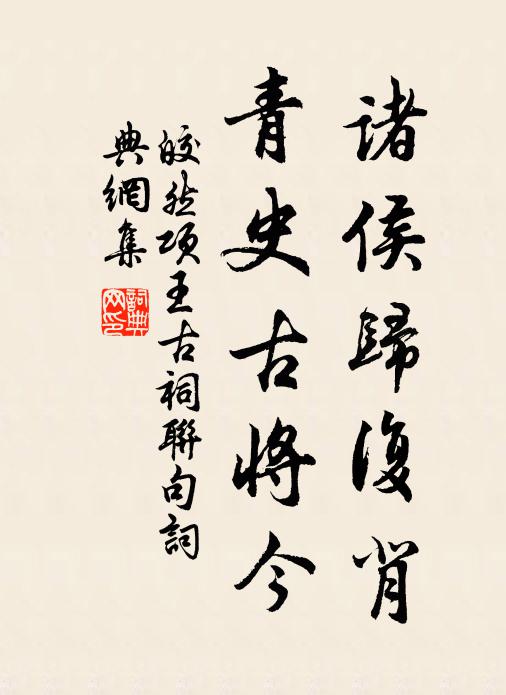 诸侯歸復背
青史古將今
皎然项王古祠聯句詞
典網集
詞典网印